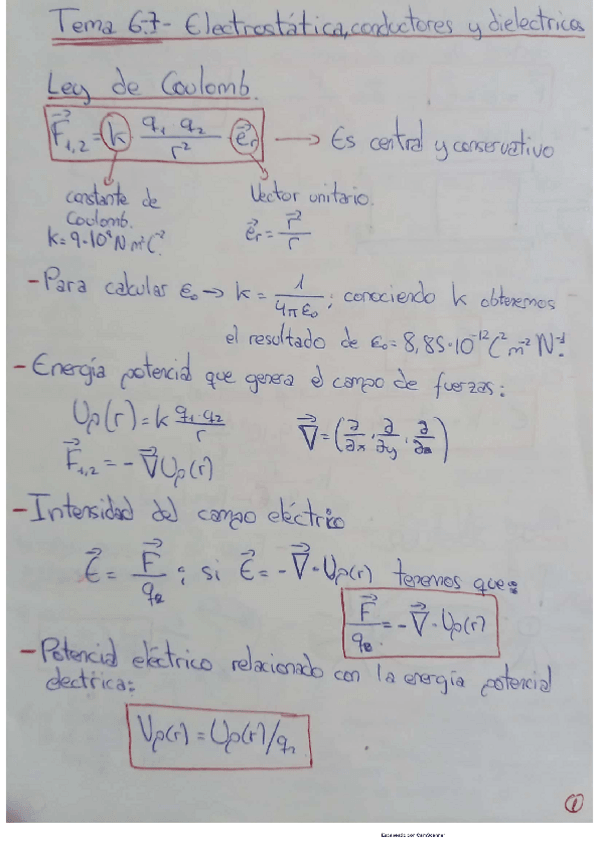 Tema 6.7- Electrostática, conductores y dielectricos
Ley de Coulomb.
F⃗₁,₂ = k (q₁ · q₂)/r² · e⃗r → Es central y conservativo
constante de Coulomb. k = 9·10⁹ N m² C⁻²
Vector unitario. e⃗r = r⃗/r
- Para calcular ε₀ → k = 1/(4πε₀); conociendo k obtenemos
el resultado de ε₀ = 8,85·10⁻¹² C² m⁻² N⁻¹.
- Energía potencial que genera el campo de fuerzas:
Up(r) = k (q₁·q₂)/r
∇⃗ = (∂/∂x, ∂/∂y, ∂/∂z)
F⃗₁,₂ = - ∇⃗ Up(r)
- Intensidad del campo eléctrico
E⃗ = F⃗/q₂ ; si E⃗ = -∇⃗·Up(r) tenemos que:
F⃗/q₂ = -∇⃗·Up(r)
- Potencial eléctrico relacionado con la energía potencial
electrica:
Vp(r) = Up(r)/q₂
1
Escaneado con CamScanner